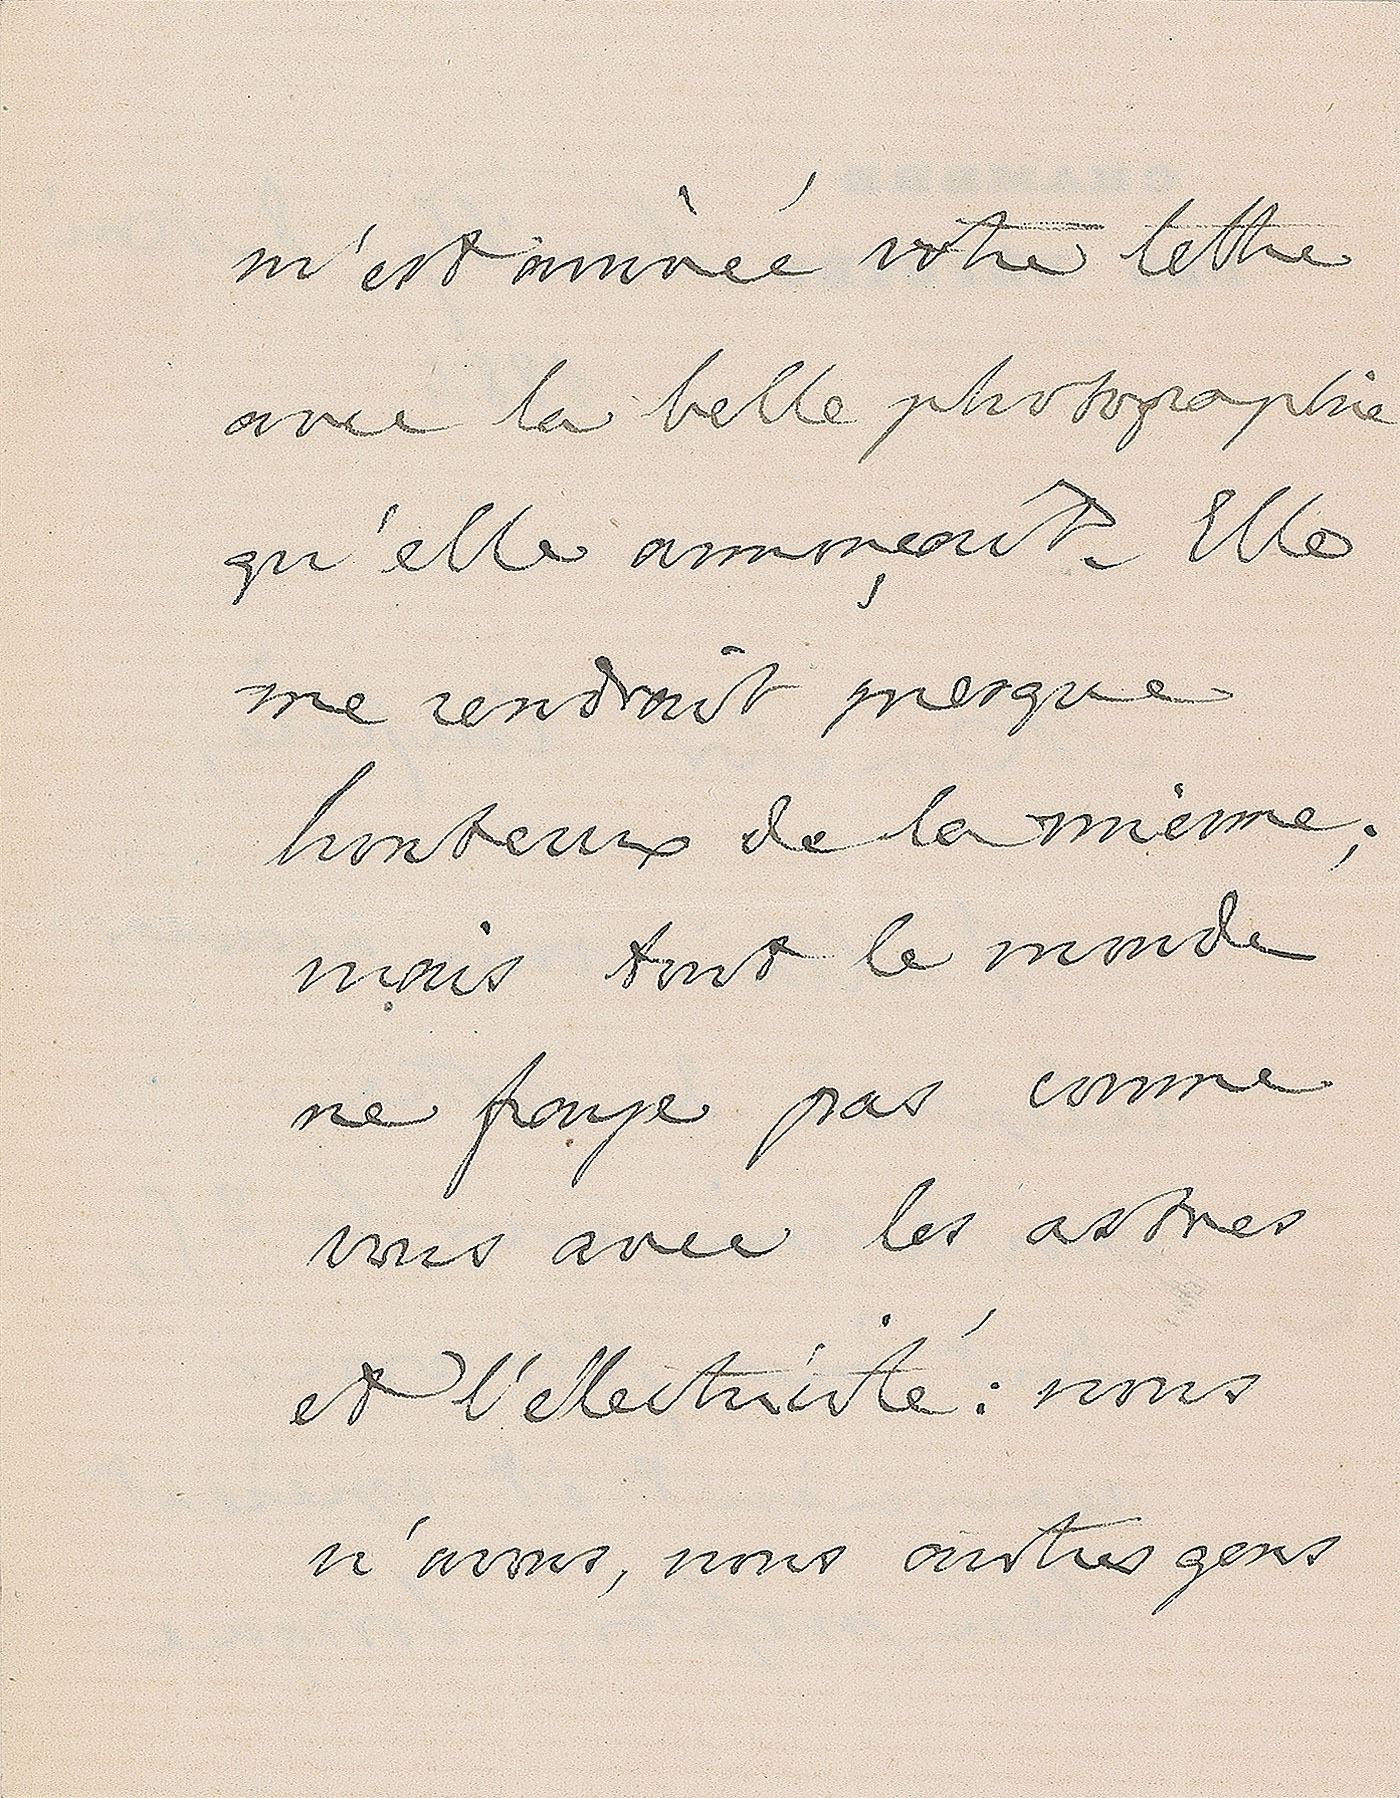 m'est arrivée votre lettre
avec la belle photographie
qu'elle annonçait. Elle
me rendrait presque
honteux de la mienne;
mais tout le monde
ne fraye pas comme
vous avec les astres
et l'éllectricité: nous
n'avons, nous autres gens